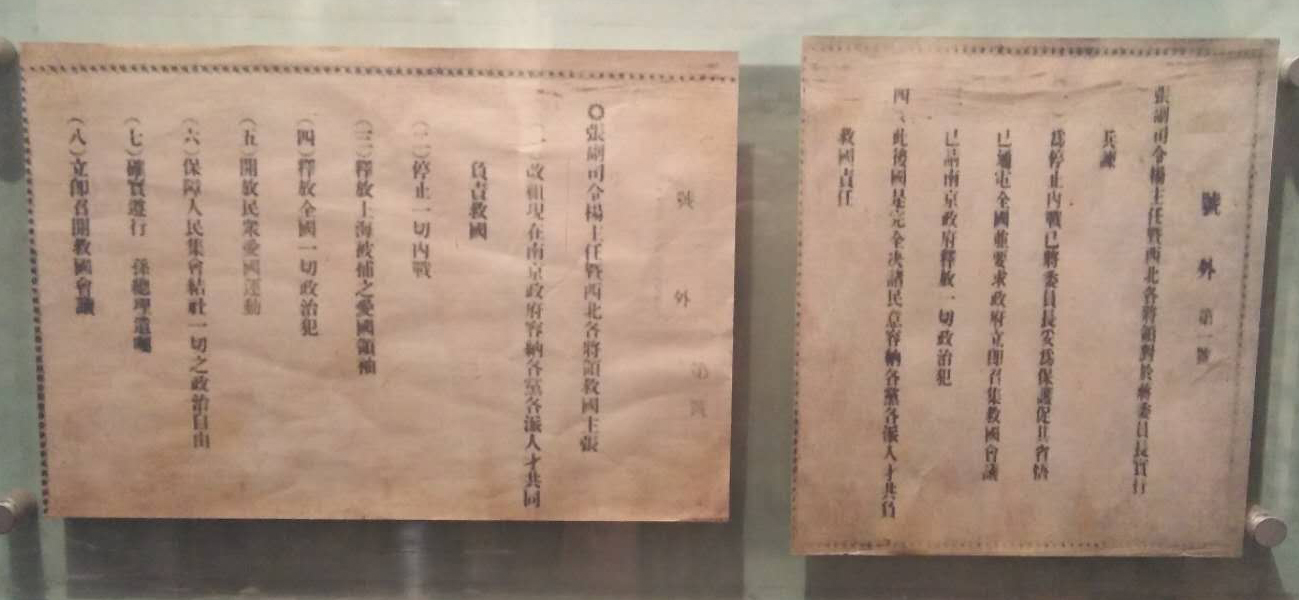 號外 第一號
張副司令楊主任暨西北各將領對於蔣委員長實行
兵諫
一 爲停止內戰已將委員長妥爲保護促其省悟
已通電全國並要求政府立即召集救國會議
已請南京政府釋放一切政治犯
四、此後國是完全决諸民意容納各黨各派人才共負
救國責任
號外 第 號
◎張副司令楊主任暨西北各將領救國主張
(一)改組現在南京政府容納各黨各派人才共同
負責救國
(二)停止一切內戰
(三)釋放上海被捕之愛國領袖
(四)釋放全國一切政治犯
(五)開放民衆愛國運動
(六)保障人民集會結社一切之政治自由
(七)確實遵行 孫總理遺囑
(八)立即召開救國會議